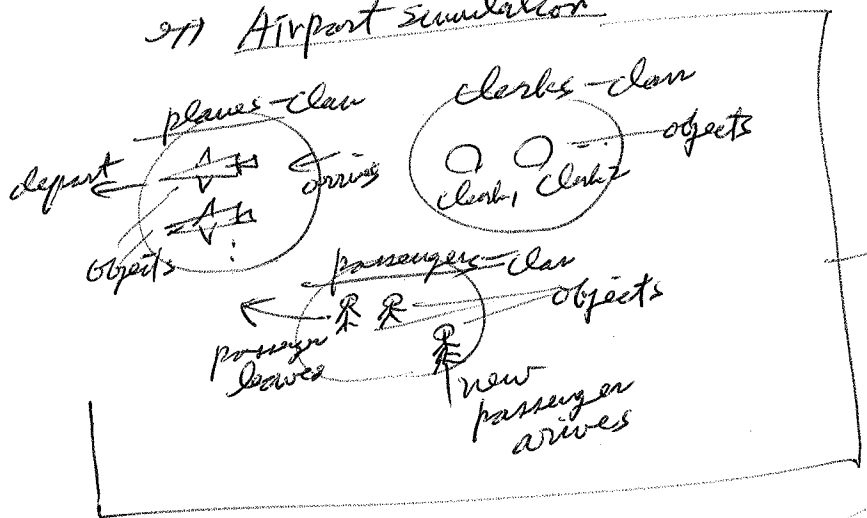 Airport simulation
planes-class
clerks-class
objects
depart
arrives
clerk1 clerk2
objects
passengers-class
objects
passenger
leaves
new
passenger
arives